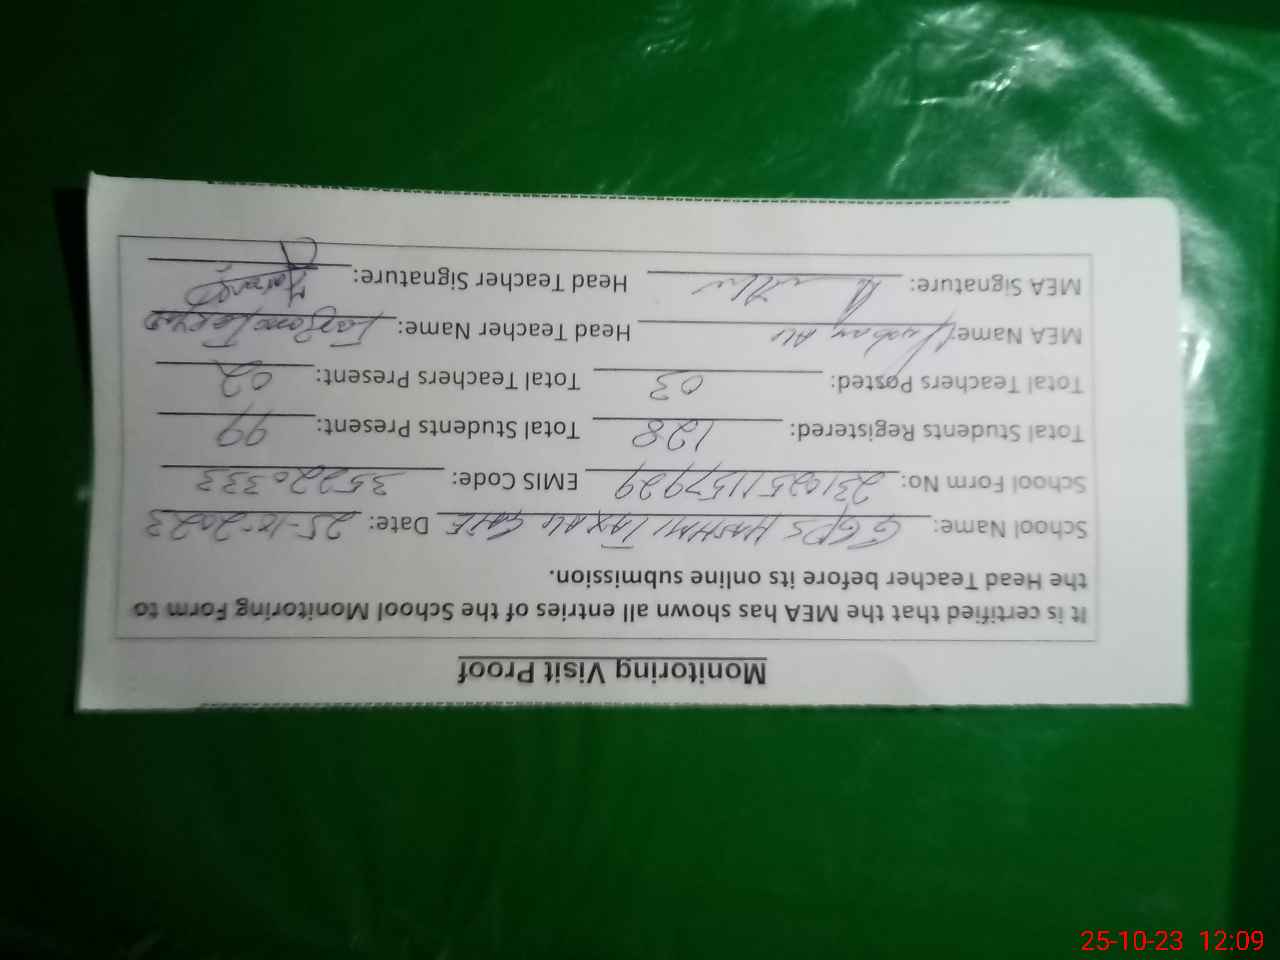 Monitoring Visit Proof
It is certified that the MEA has shown all entries of the School Monitoring Form to
the Head Teacher before its online submission.
School Name: GGPS HASHMI Date: 25-10-2023
School Form No: 2310251157929 EMIS Code: 35220333
Total Students Registered: 128 Total Students Present: 99
Total Teachers Posted: 03 Total Teachers Present: 02
MEA Name: Ali Head Teacher Name:
MEA Signature: Head Teacher Signature:
25-10-23 12:09